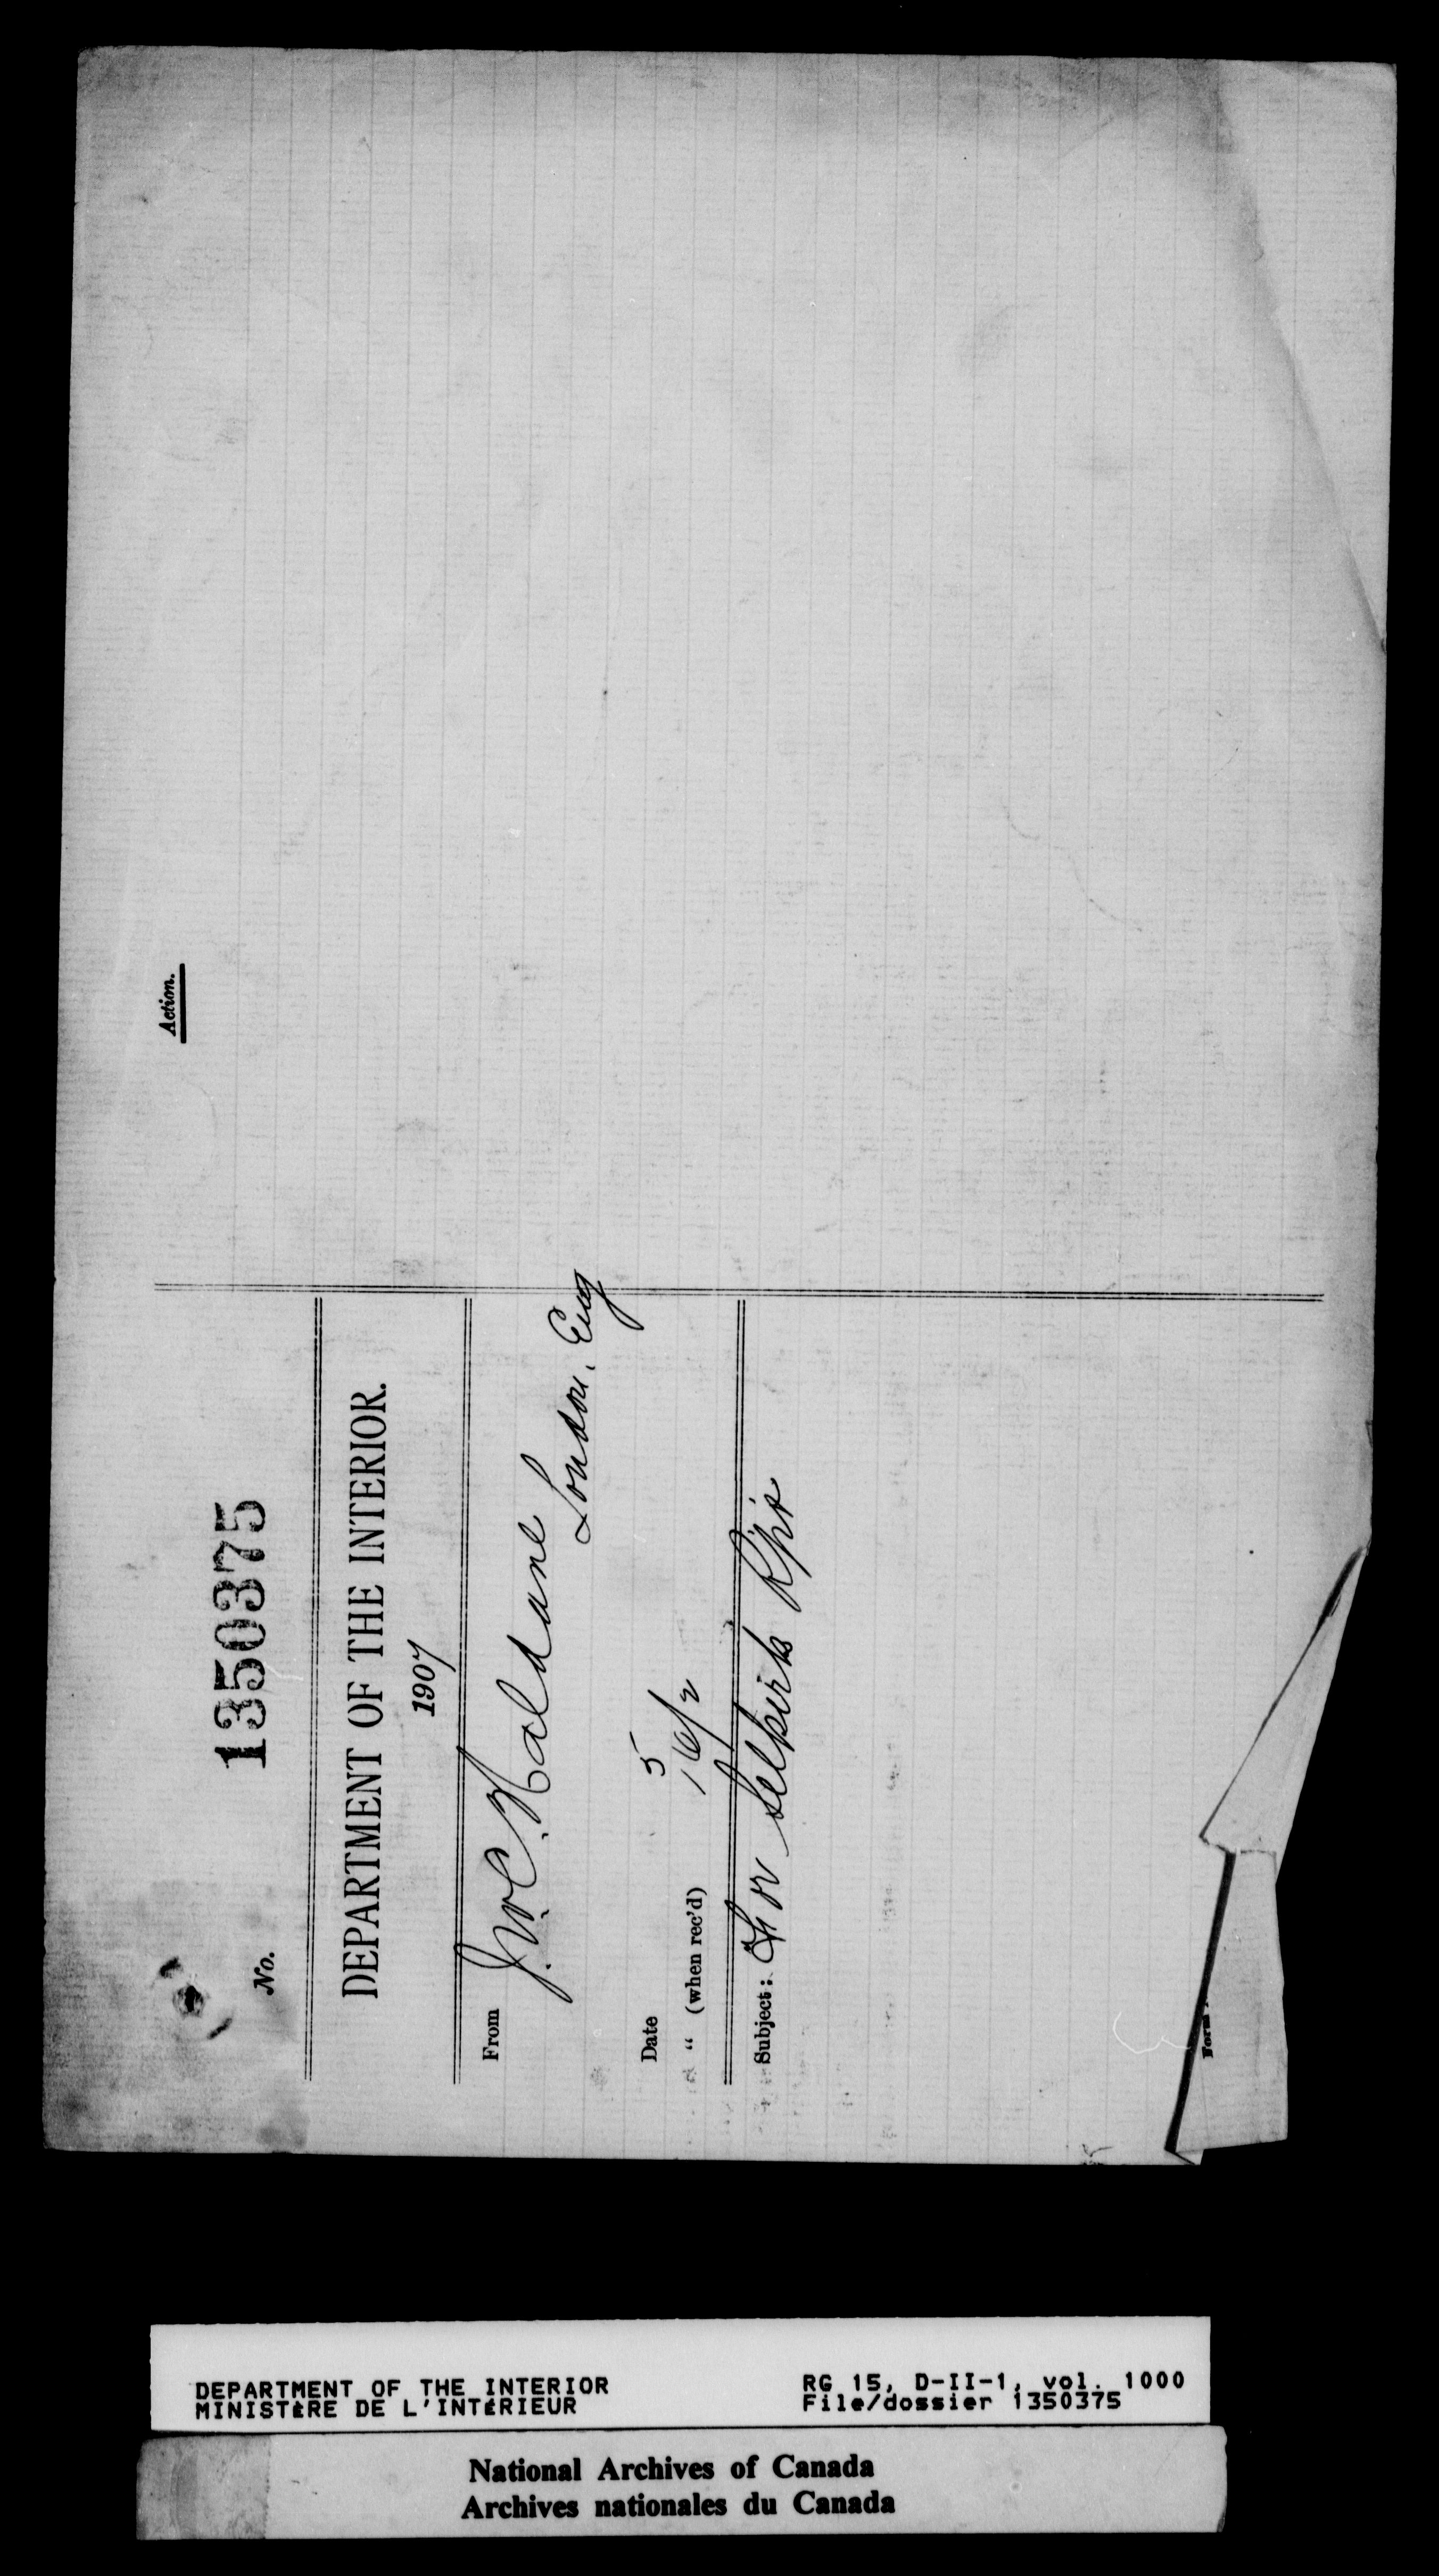 No. 1350375
DEPARTMENT OF THE INTERIOR.
1907
From J. W. C. Haldane
London. Eng
Date 5
" (when rec'd) 16/2
Subject: For Selkirk Rpts
Action.
Form
DEPARTMENT OF THE INTERIOR
MINISTÈRE DE L'INTÉRIEUR
RG 15, D-II-1, vol. 1000
File/dossier 1350375
National Archives of Canada
Archives nationales du Canada